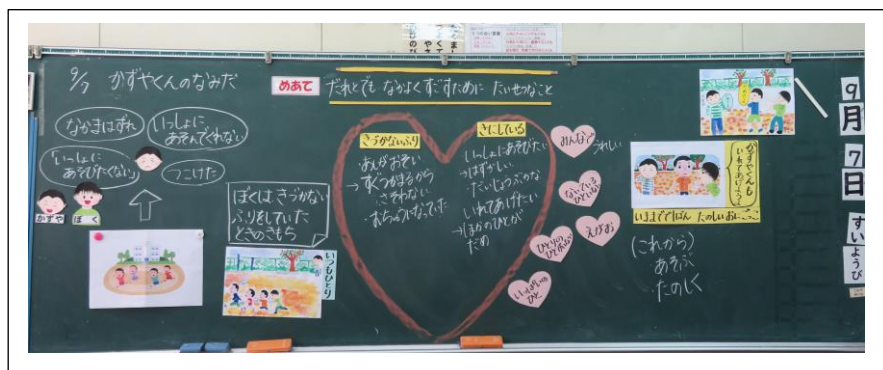 9/7 かずやくんのなみだ
めあて
だれとでも なかよくすごすために たいせつなこと
なかまはずれ
いっしょに
あそんでくれない
いっしょに
あそびたくない
つこけた
かずや
ぼく
ぼくは、きづかない
ふりをしていた
ときのきもち
いつもひとり
きづかないふり
・あしがおそい
→すぐつかまるから
さそわない
きにしている
・いっしょにあそびたい
→はずかしい
・だいじょうぶかな
・いれてあげたい
→ほかのひとが
だめ
みんなで
うれしい
ないている
えがお
ひとりの
いっぱいの
ひと
かずやくんも
いれてあげよう
いままででいちばん たのしいおに
(これから)
・あそぶ
・たのしく
9月
7日
すいようび